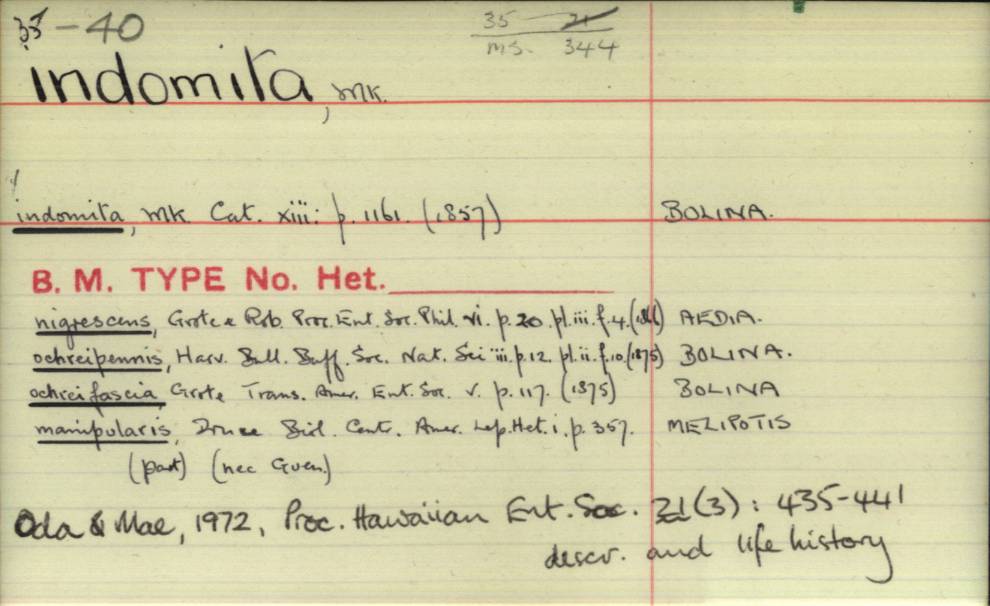 35-40
35 21
ms. 344
indomita, wk.
indomita, wk. Cat. xiii: p. 1161. (1857) BOLINA.
B. M. TYPE No. Het.
nigrescens, Grote & Rob. Proc. Ent. Soc. Phil. vi. p. 20. pl. iii. f. 4. (1866) AEDIA.
ochreipennis, Harv. Bull. Buff. Soc. Nat. Sci iii. p. 12. pl. ii. f. 10. (1875) BOLINA.
ochreifascia, Grote Trans. Amer. Ent. Soc. v. p. 117. (1875) BOLINA
manipularis, Druce Biol. Centr. Amer. Lep. Het. i. p. 357. MELIPOTIS
(part) (nec Guen.)
Oda & Mae, 1972, Proc. Hawaiian Ent. Soc. 21(3): 435-441
descr. and life history